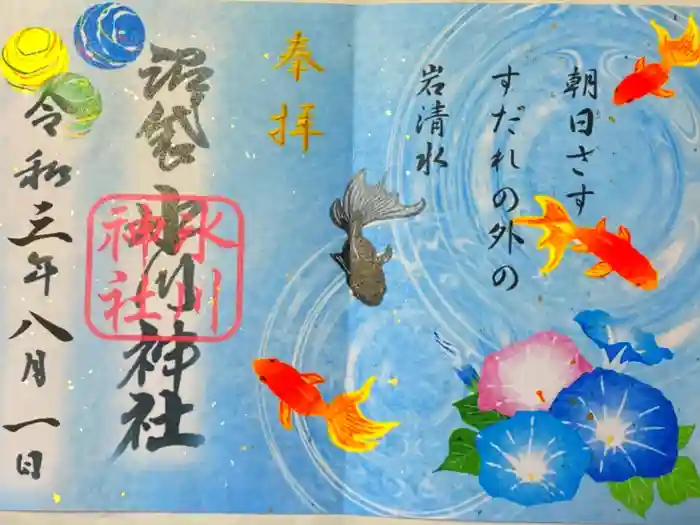 朝日さす
すだれの外の
岩清水
奉拝
沼袋 氷川神社
氷川
神社
令和三年八月一日